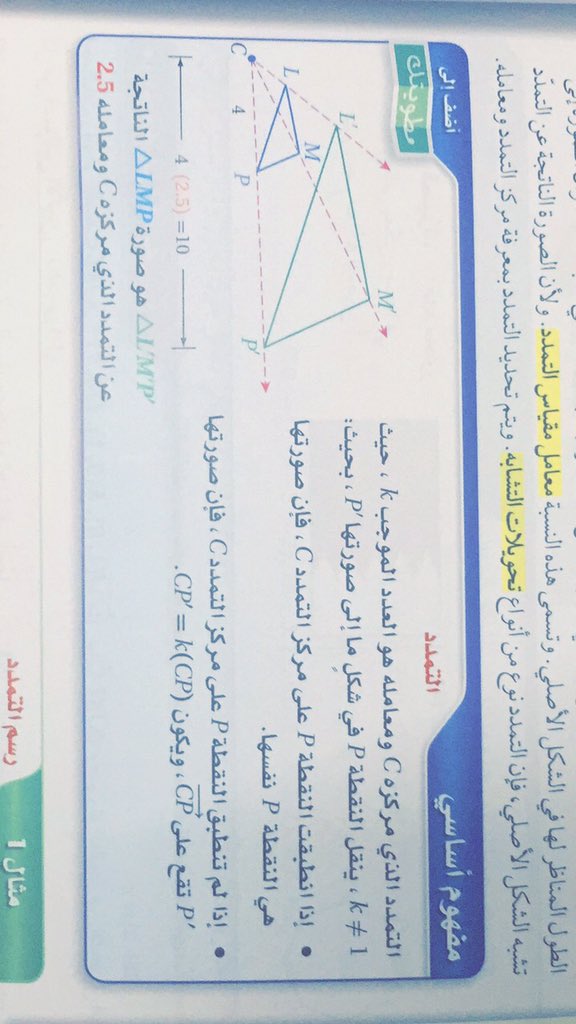 الطول المناظر لها في الشكل الأصلي. وتسمى هذه النسبة معامل مقياس التمدد. ولأن الصورة الناتجة عن التمدد
تشبه الشكل الأصلي، فإن التمدد نوع من أنواع تحويلات التشابه. ويتم تحديد التمدد بمعرفة مركز التمدد ومعامله.
مفهوم أساسي
أضف إلى
مطويتك
التمدد
التمدد الذي مركزه C ومعامله هو العدد الموجب k، حيث
k ≠ 1، ينقل النقطة P في شكلٍ ما إلى صورتها P′، بحيث:
• إذا انطبقت النقطة P على مركز التمدد C، فإن صورتها
هي النقطة P نفسها.
• إذا لم تنطبق النقطة P على مركز التمدد C، فإن صورتها
P′ تقع على CP، ويكون CP′ = k(CP).
L′
M′
L
M
C
4
P
P′
4 (2.5) =10
△L′M′P′ هو صورة △LMP الناتجة
عن التمدد الذي مركزه C ومعامله 2.5
مثال 1
رسم التمدد